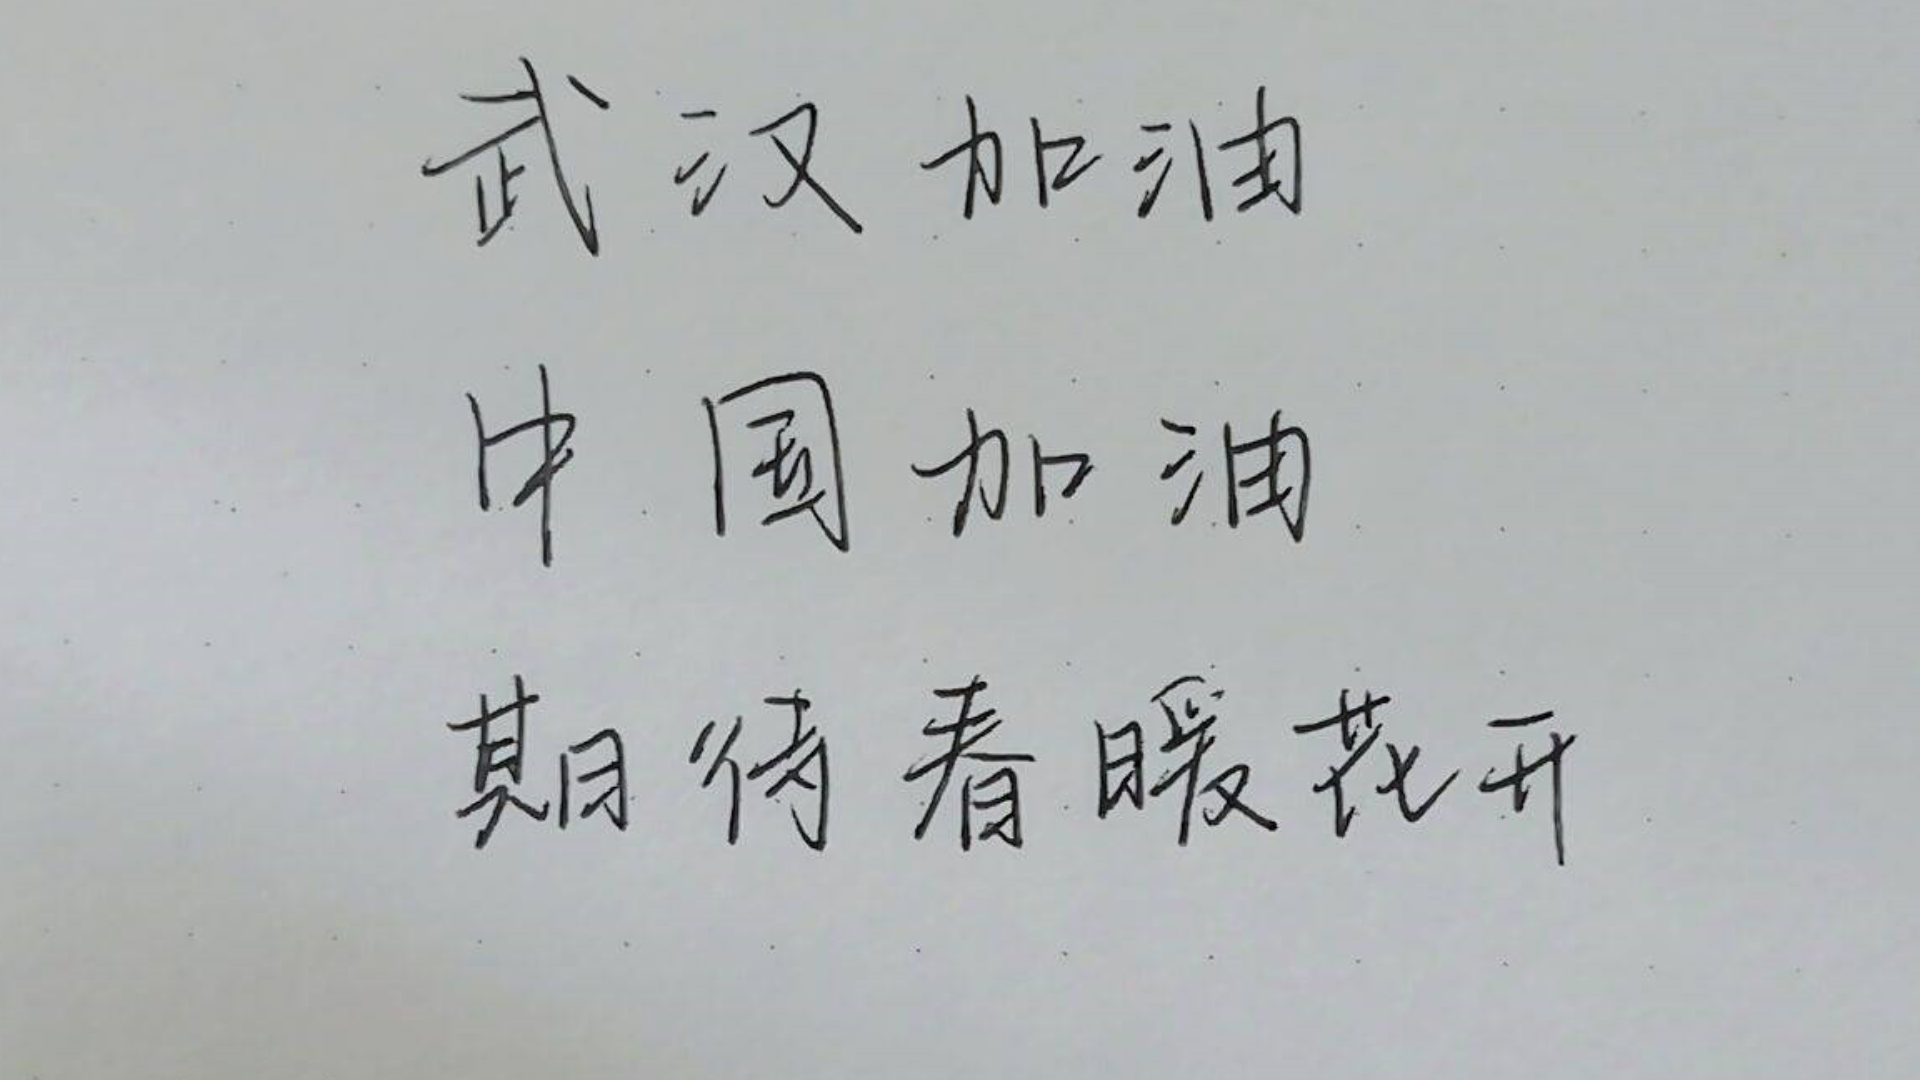 武汉加油
中国加油
期待春暖花开